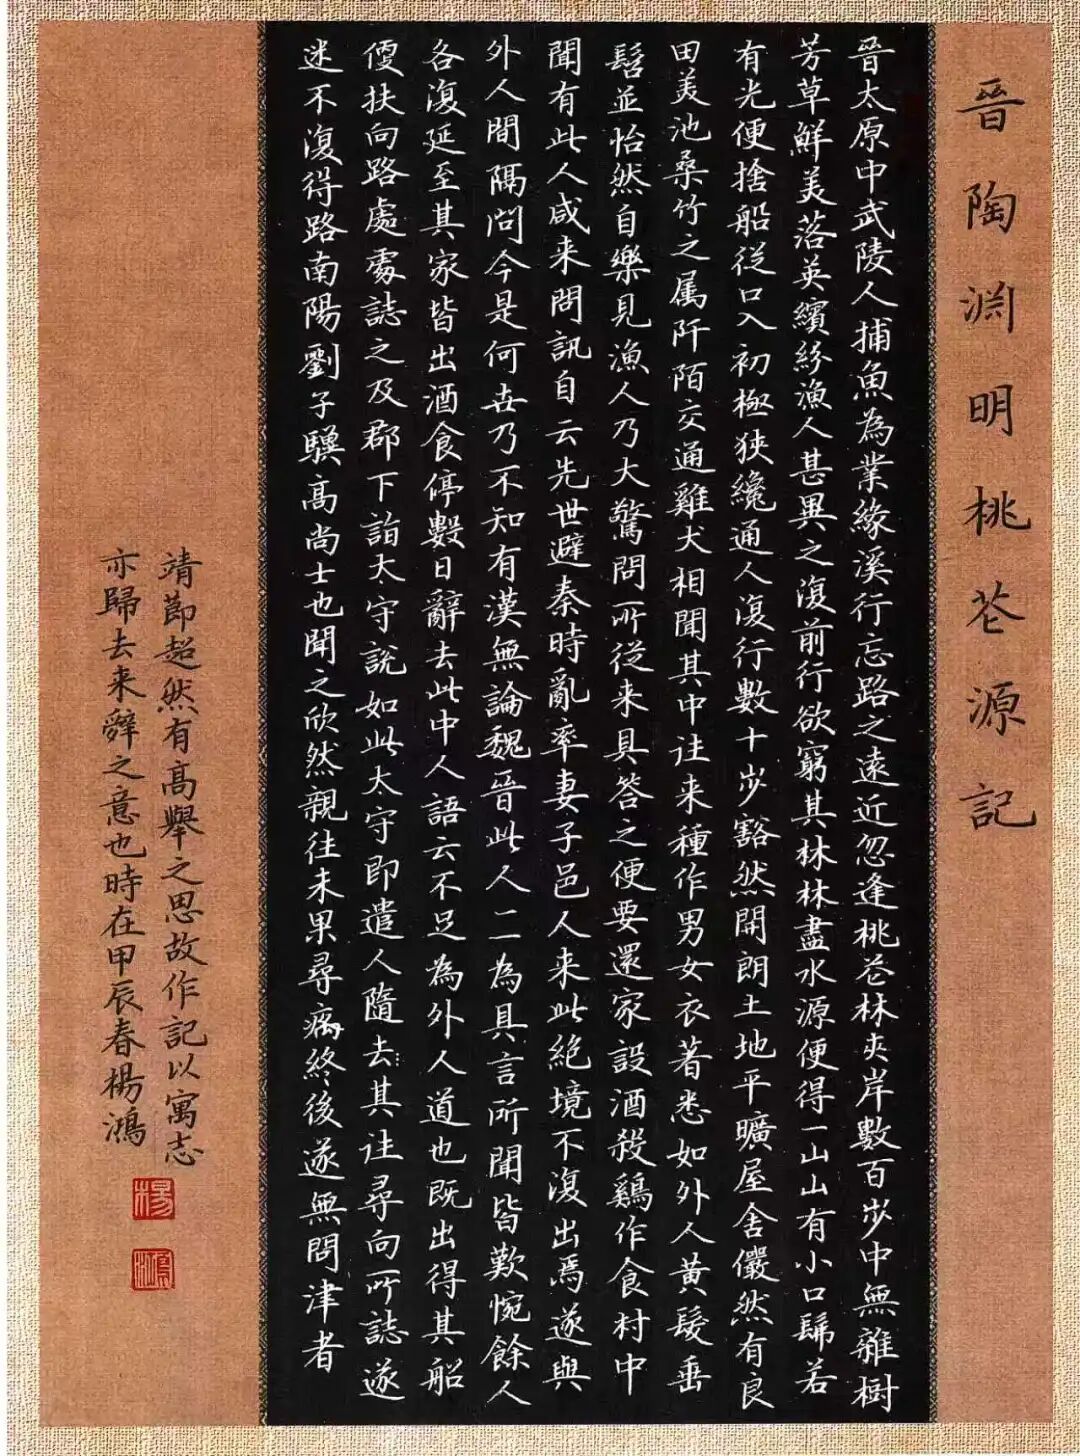 晉陶淵明桃花源記
晉太原中武陵人捕魚為業緣溪行忘路之遠近忽逢桃花林夾岸數百步中無雜樹
芳草鮮美落英繽紛漁人甚異之復前行欲窮其林林盡水源便得一山山有小口髣若
有光便捨船從口入初極狹纔通人復行數十步豁然開朗土地平曠屋舍儼然有良
田美池桑竹之属阡陌交通雞犬相聞其中往来種作男女衣著悉如外人黃髮垂
髫並怡然自樂見漁人乃大驚問所從来具答之便要還家設酒殺鷄作食村中
聞有此人咸来問訊自云先世避秦時亂率妻子邑人来此絕境不復出焉遂與
外人間隔問今是何世乃不知有漢無論魏晉此人一一為具言所聞皆歎惋餘人
各復延至其家皆出酒食停數日辭去此中人語云不足為外人道也既出得其船
便扶向路處處誌之及郡下詣太守說如此太守即遣人隨去其往尋向所誌遂
迷不復得路南陽劉子驥高尚士也聞之欣然親往未果尋病終後遂無問津者
靖節超然有高舉之思故作記以寓志
亦歸去来辭之意也時在甲辰春楊鴻
楊
鴻